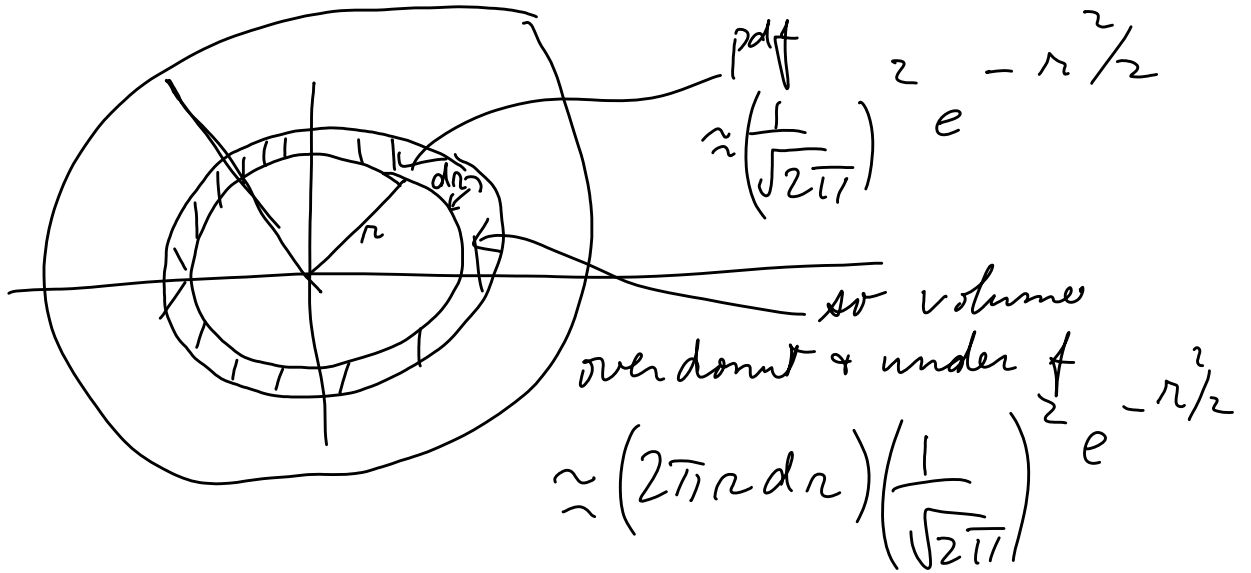 pdf
≈ (1/√2π)² e^-r²/2
dr
r
so volume
over donut & under f
≈ (2πr dr) (1/√2π)² e^-r²/2